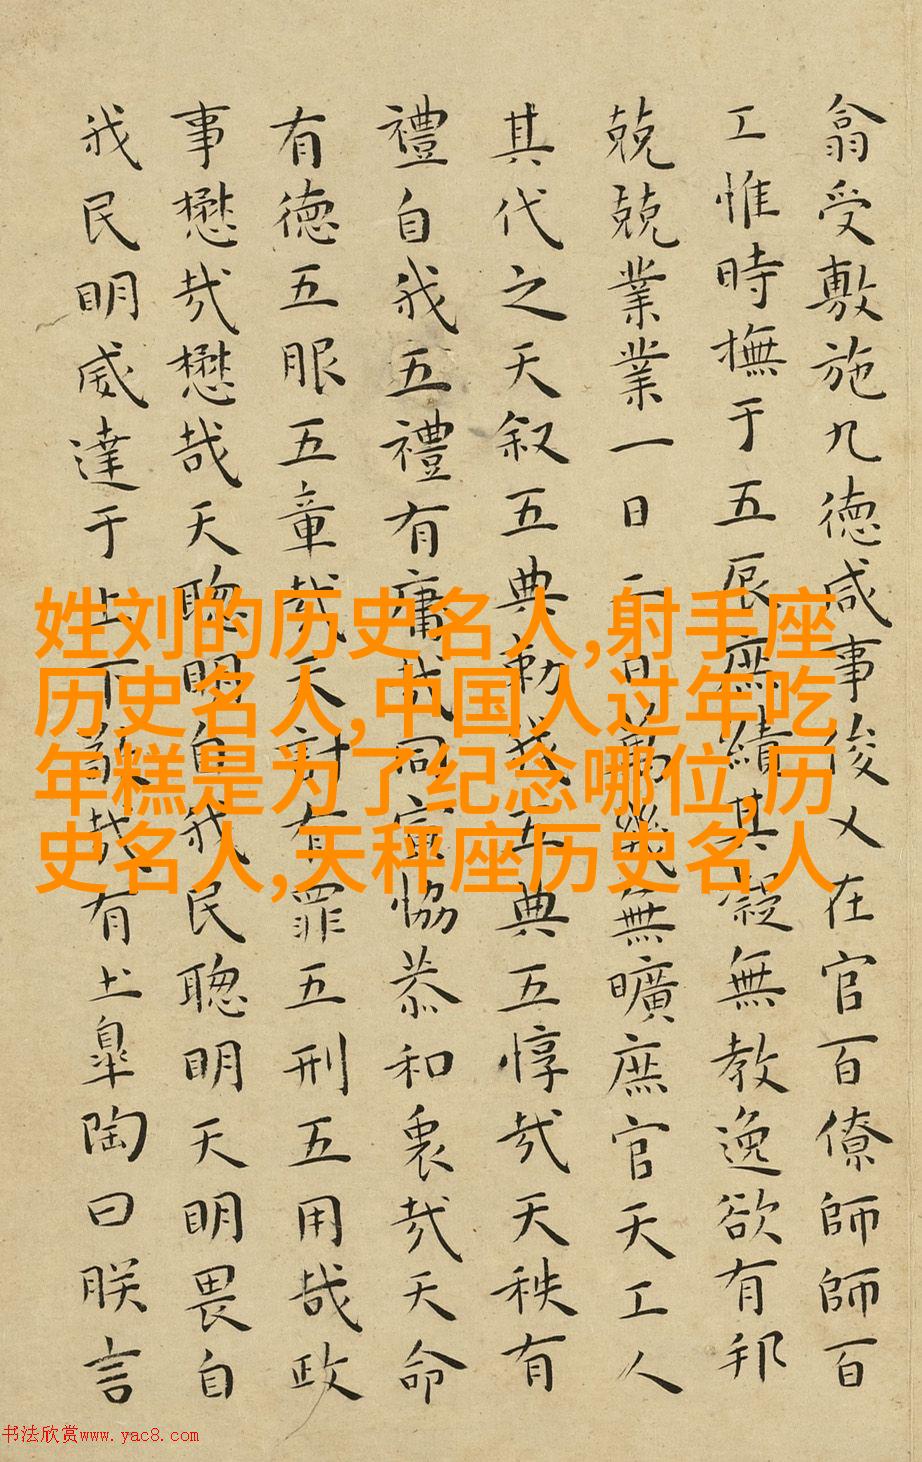 翕受敷施九德咸事俊乂在官百僚師師百
工惟時撫于五辰庶績其凝無教逸欲有邦
兢兢業業一日二日萬幾無曠庶官天工人
其代之天叙五典勑我五典五惇哉天秩有
禮自我五禮有庸哉同寅恊恭和衷哉天命
有德五服五章哉天討有罪五刑五用哉政
事懋哉懋哉天聦明自我民聦明天明畏自
我民明威達于上下敬哉有土皐陶曰朕言
姓刘的历史名人,射手座
历史名人,中国人过年吃
年糕是为了纪念哪位,历
史名人,天秤座历史名人
书法欣赏www.yac8.com